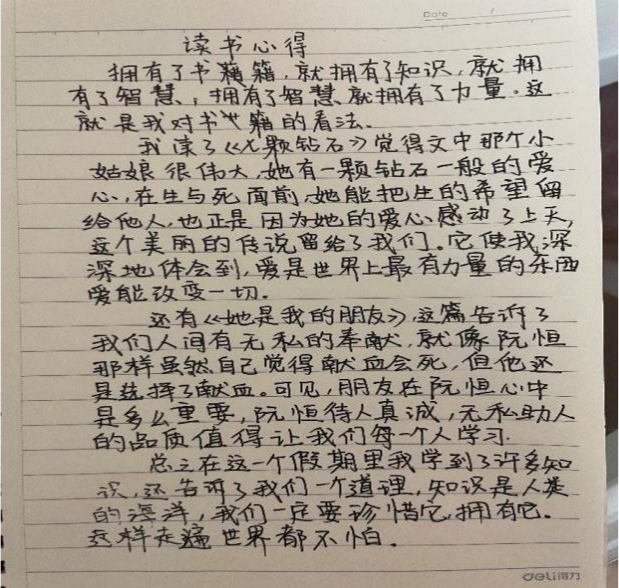 Date /
读书心得
拥有了书籍籍,就拥有了知识,就拥
有了智慧,拥有了智慧就拥有了力量。这
就是我对书籍的看法。
我读了《七颗钻石》觉得文中那个小
姑娘很伟大,她有一颗钻石一般的爱
心,在生与死面前,她能把生的希望留
给他人,也正是因为她的爱心感动了上天,
这个美丽的传说留给了我们。它使我深
深地体会到,爱是世界上最有力量的东西
爱能改变一切.
还有《她是我的朋友》,这篇告诉了
我们人间有无私的奉献,就像阮恒
那样虽然自己觉得献血会死,但他还
是选择了献血。可见,朋友在阮恒心中
是多么重要,阮恒待人真诚,无私助人
的品质值得让我们每一个人学习.
总之在这一个假期里我学到了许多知
识,还告诉了我们一个道理,知识是人类
的海洋,我们一定要珍惜它,拥有它.
这样走遍世界都不怕.
deli得力